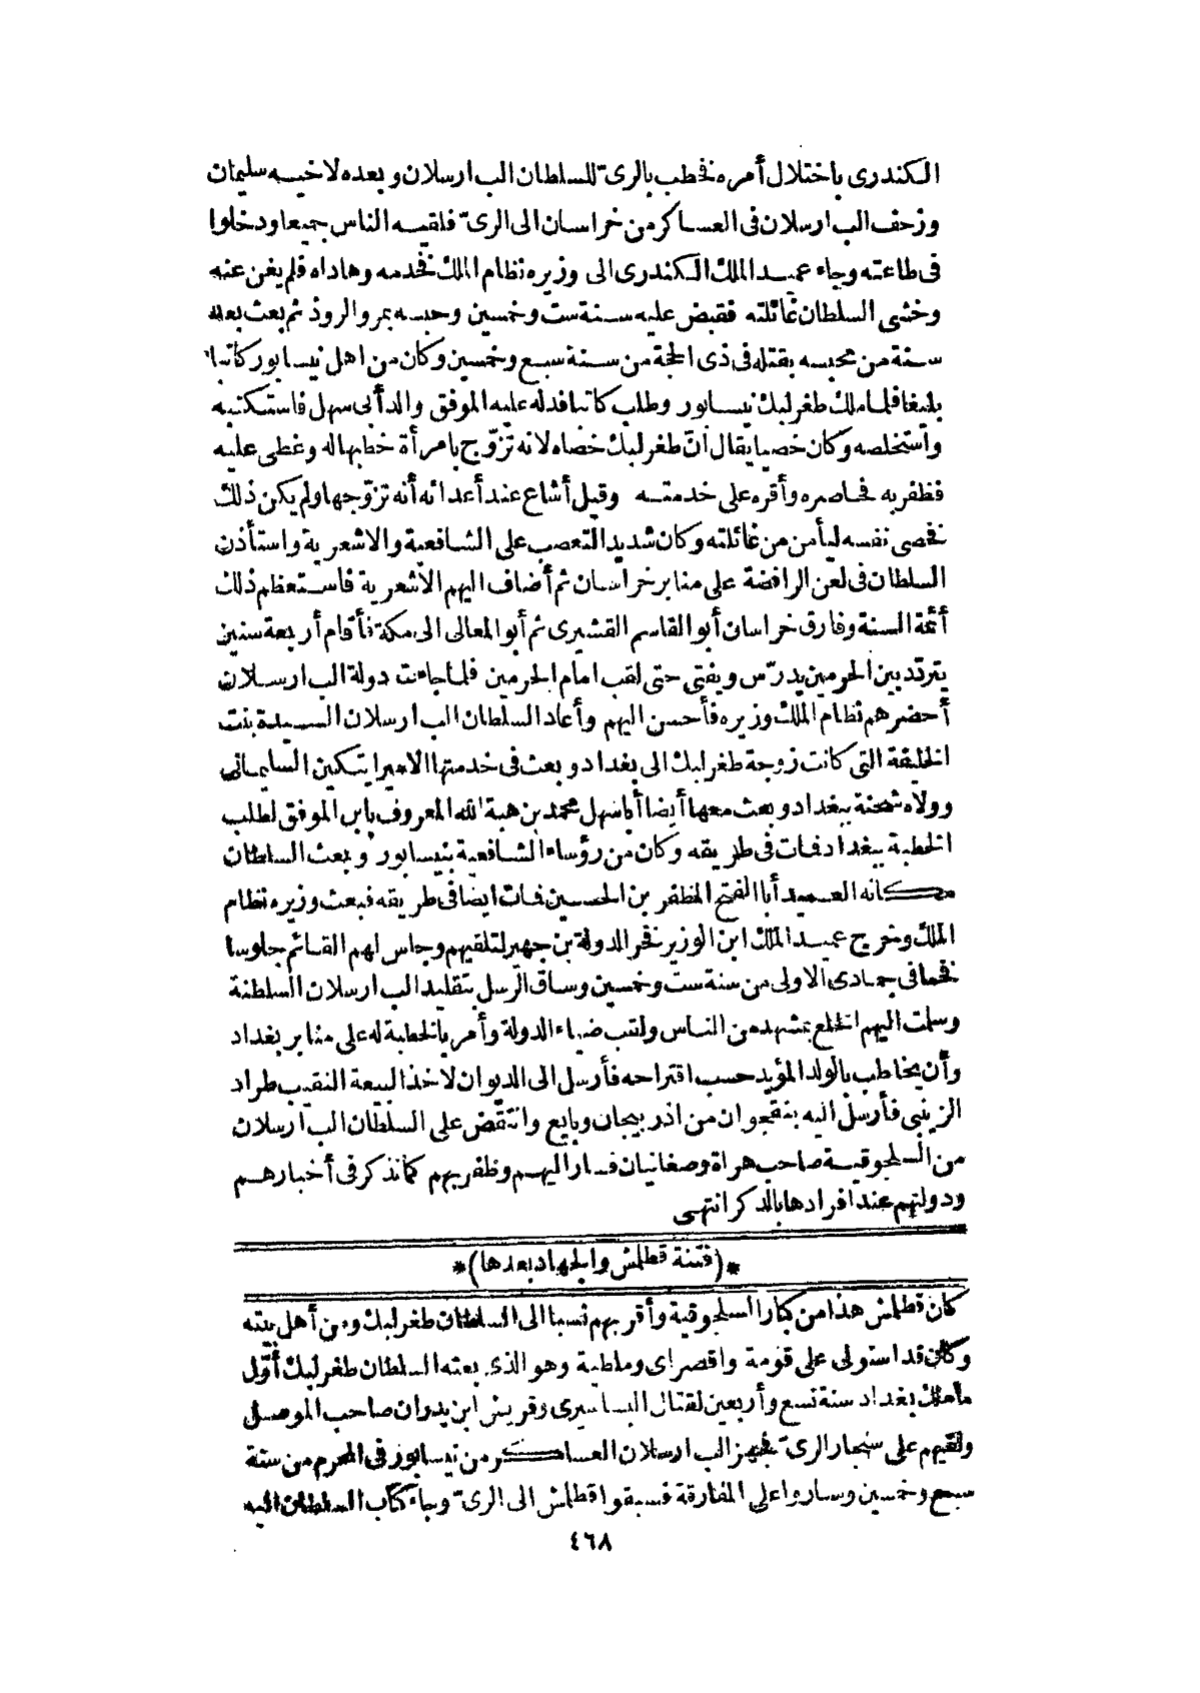 الكندرى باختلال أمره فخطب بالرىّ للسلطان الب ارسلان وبعده لاخيه سليمان
وزحف الب ارسلان فى العساكر من خراسان الى الرىّ فلقيه الناس جميعا ودخلوا
فى طاعته وجاء عميد الملك الكندرى الى وزيره نظام الملك فخدمه وهاداه فلم يغن عنه
وخشى السلطان غائلته فقبض عليه سنة ست وخمسين وحبسه بمرو الروذ ثم بعث بعد
سنة من محبسه بقتله فى ذى الحجة من سنة سبع وخمسين وكان من اهل نيسابور كاتبا
بليغا فلما ملك طغرلبك نيسابور وطلب كاتبا فدله عليه الموفق والد أبى سهل فاستكتبه
واستخلصه وكان خصيا يقال انّ طغرلبك خصاه لانه تزوّج بامرأة خطبها له وغطى عليه
فظفر به فحاصره وأقره على خدمته وقيل أشاع عند أعدائه أنه تزوّجها ولم يكن ذلك
فخصى نفسه ليأمن من غائلته وكان شديد التعصب على الشافعية والاشعرية واستأذن
السلطان فى لعن الرافضة على منابر خراسان ثم أضاف اليهم الأشعرية فاستعظم ذلك
أئمة السنة وفارق خراسان أبو القاسم القشيرى ثم أبو المعالى الى مكة فأقام أربعة سنين
يتردد بين الحرمين يدرّس ويفتى حتى لقب امام الحرمين فلما جاءت دولة الب ارسلان
أحضرهم نظام الملك وزيره فأحسن اليهم وأعاد السلطان الب ارسلان السيدة بنت
الخليفة التى كانت زوجة طغرلبك الى بغداد وبعث فى خدمتها الامير ايتكين السليمانى
وولاه شحنة ببغداد وبعث معها أيضا أبا سهل محمد بن هبة الله المعروف بابن الموفق لطلب
الخطبة ببغداد فمات فى طريقه وكان من رؤساء الشافعية بنيسابور وبعث السلطان
مكانه العميد أبا الفتح المظفر بن الحسين فمات ايضا فى طريقه فبعث وزيره نظام
الملك وخرج عميد الملك ابن الوزير فخر الدولة بن جهير لتلقيهم وجلس لهم القائم جلوسا
فخما فى جمادى الاولى من سنة ست وخمسين وساق الرسل بتقليد الب ارسلان السلطنة
وسلمت اليهم الخلع بمشهد من الناس ولقب ضياء الدولة وأمر بالخطبة له على منابر بغداد
وأن يخاطب بالولد المؤيد حسب اقتراحه فأرسل الى الديوان لاخذ البيعة النقيب طراد
الزينبى فأرسل اليه بنقجوان من اذربيجان وبايع وانتقض على السلطان الب ارسلان
من السلجوقية صاحب هراة وصغانيان فسار اليهم وظفر بهم كما نذكر فى أخبارهم
ودولتهم عند افرادها بالذكر انتهى
*(فتنة قطلمش والجهاد بعدها)*
كان قطلمش هذا من كبار السلجوقية وأقربهم نسبا الى السلطان طغرلبك ومن أهل بيته
وكان قد استولى على قومة واقصراى وملطية وهو الذى بعثه السلطان طغرلبك أوّل
ما ملك بغداد سنة تسع وأربعين لقتال البساسيرى وقريش ابن بدران صاحب الموصل
ولقيهم على سنجار الرىّ فجهز الب ارسلان العساكر من نيسابور فى المحرم من سنة
سبع وخمسين وساروا على المفازة فسبقوا قطلمش الى الرىّ وجاء كتاب السلطان اليه
٤٦٨